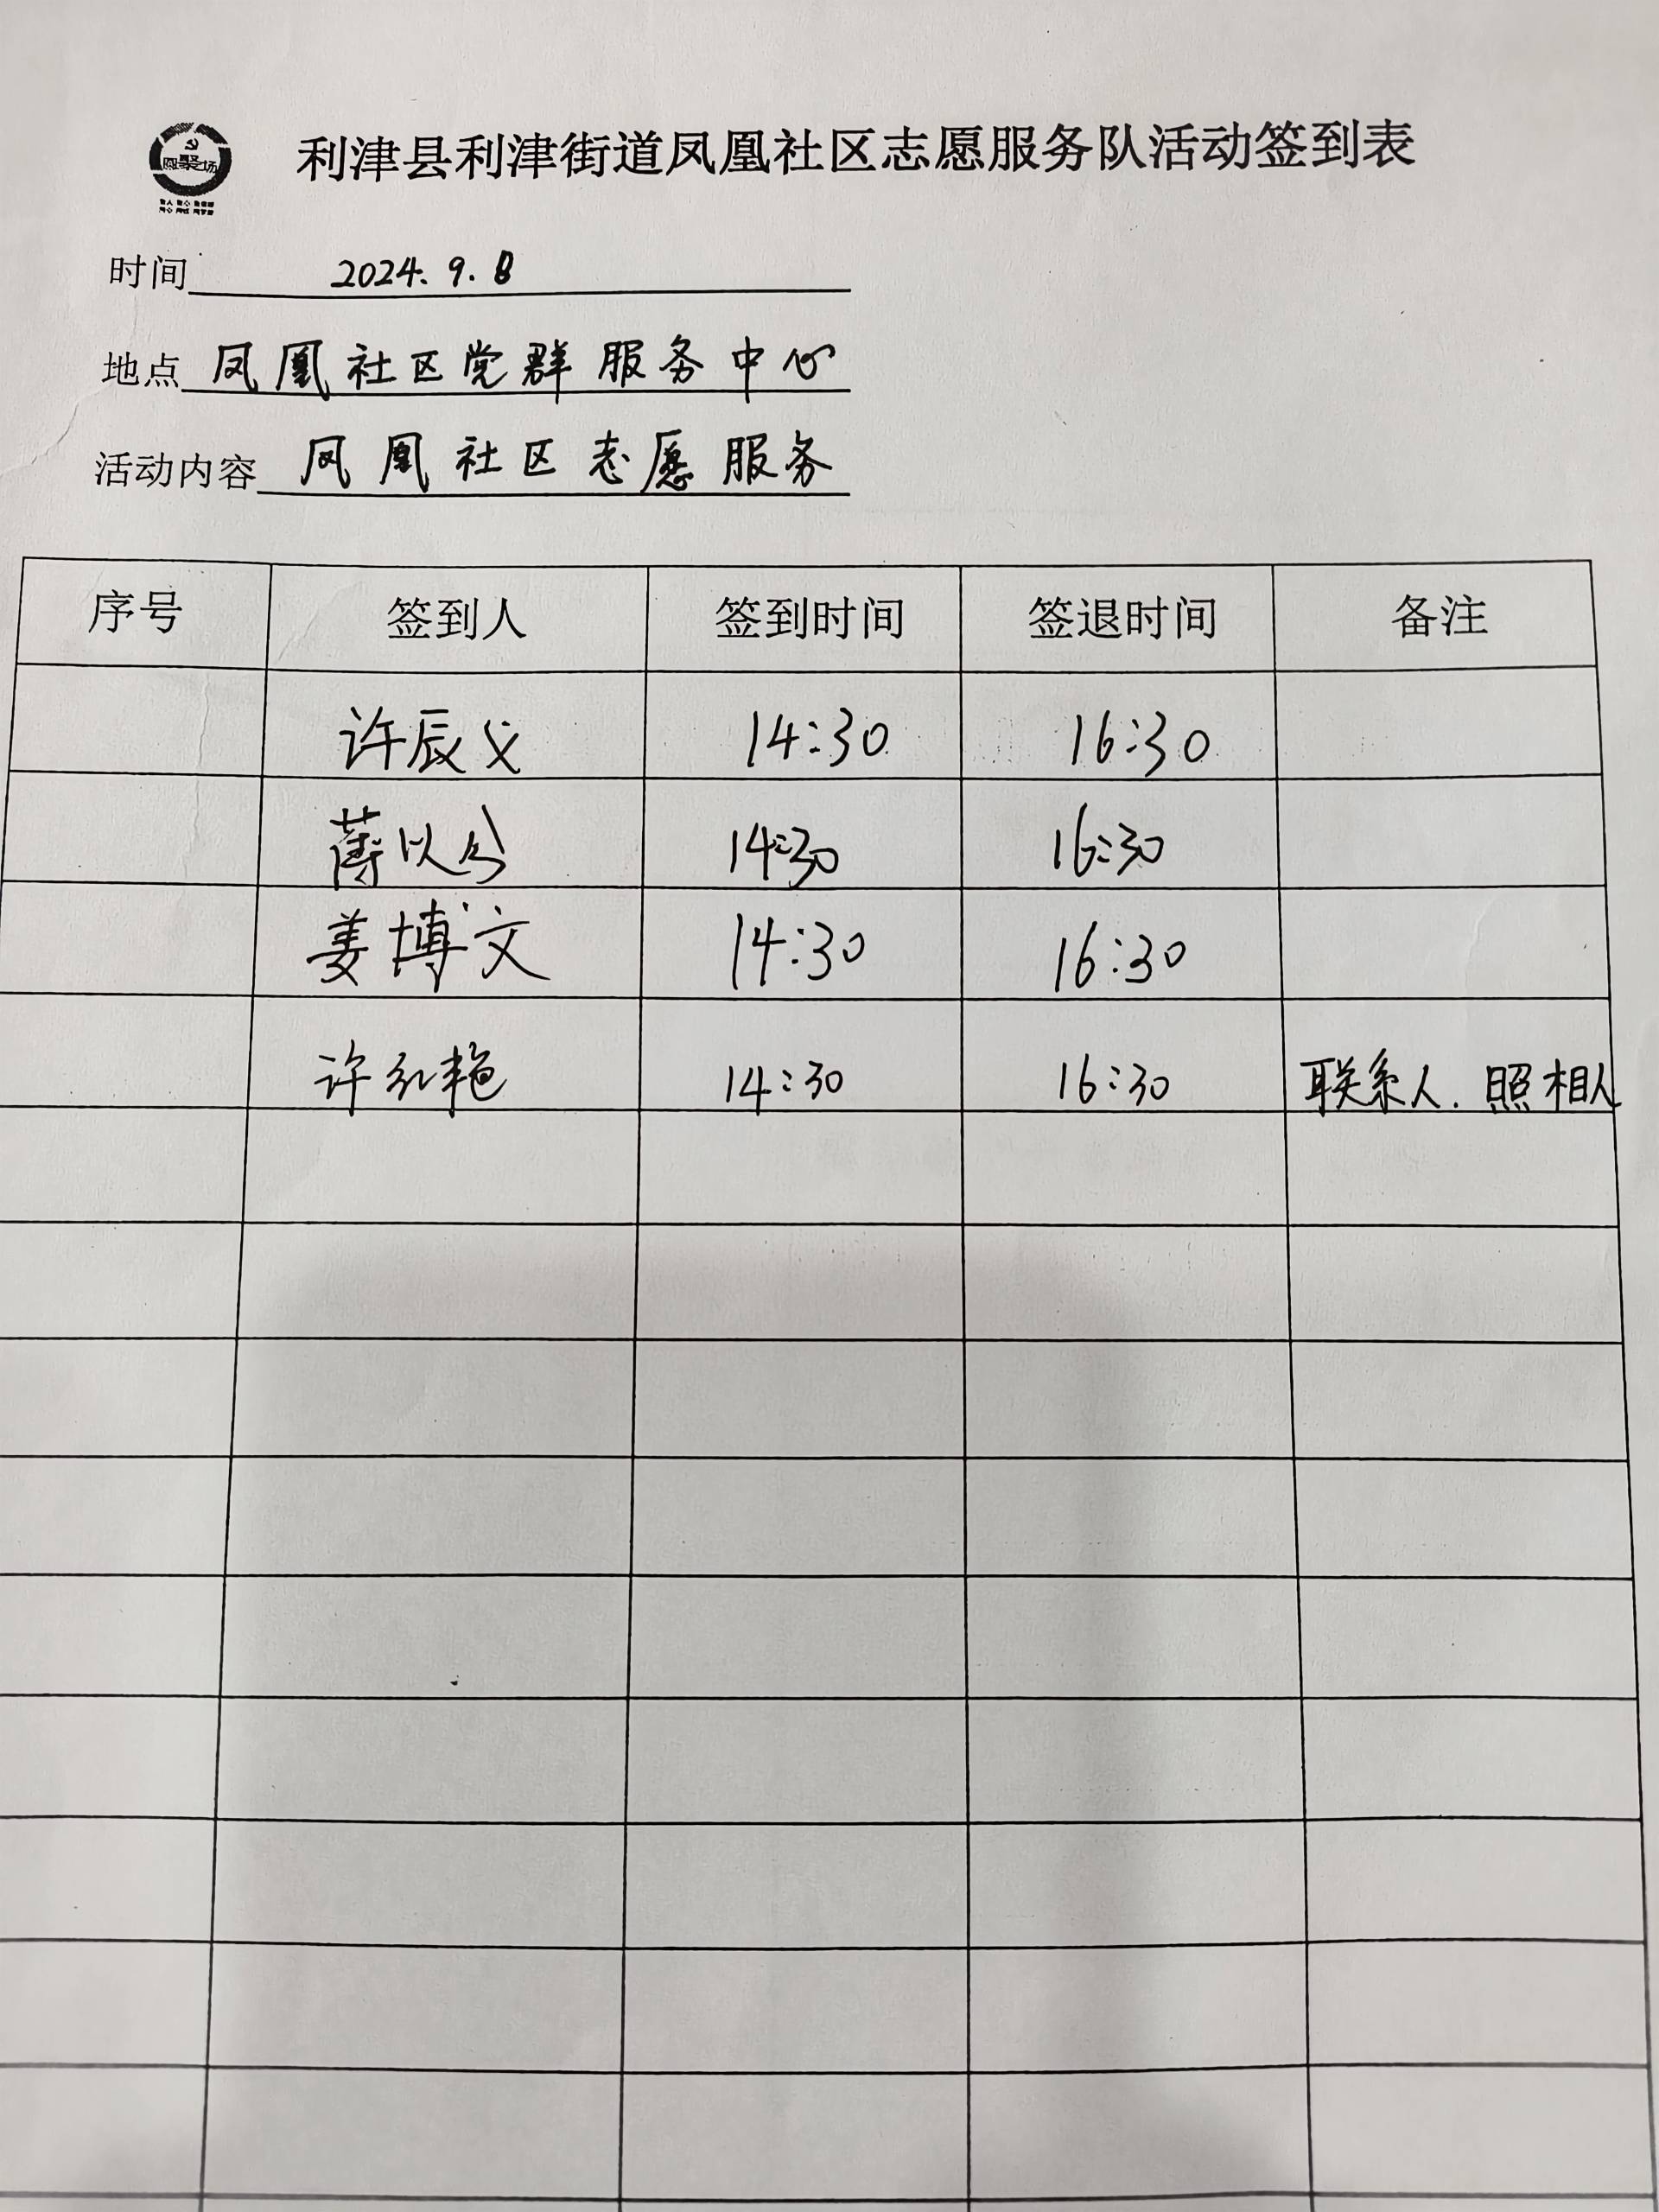 利津县利津街道凤凰社区志愿服务队活动签到表
时间 2024.9.8
地点 凤凰社区党群服务中心
活动内容 凤凰社区志愿服务
序号 签到人 签到时间 签退时间 备注
许辰 14:30 16:30
以 14:30 16:30
姜博文 14:30 16:30
许红艳 14:30 16:30 联系人.照相人